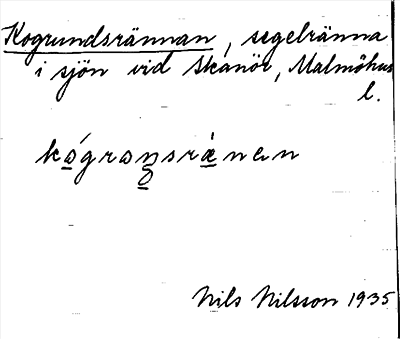 Kogrundsrännan, segelränna
i sjön vid Skanör, Malmöhus
l.
kógrånsränan
Nils Nilsson 1935